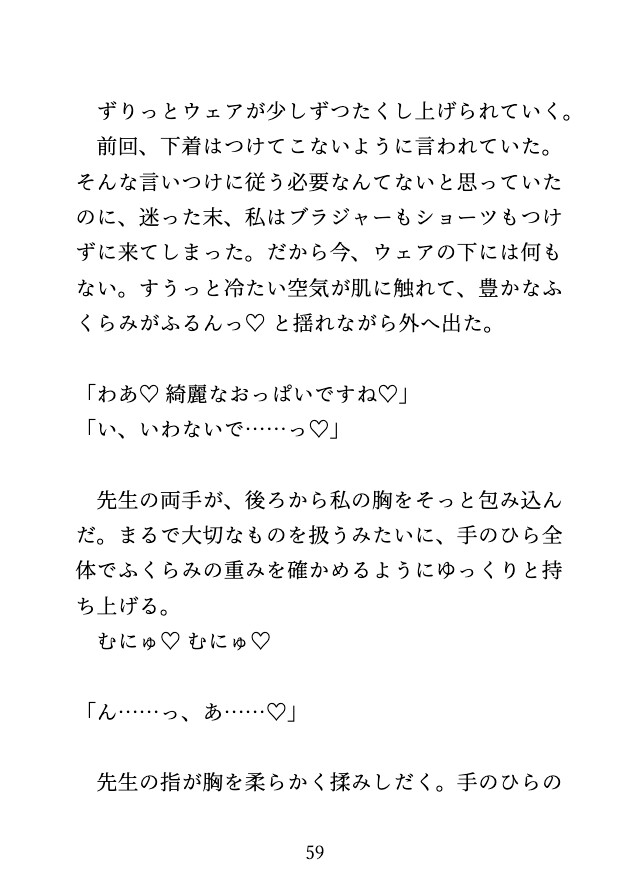 ずりっとウェアが少しずつたくし上げられていく。
前回、下着はつけてこないように言われていた。
そんな言いつけに従う必要なんてないと思っていた
のに、迷った末、私はブラジャーもショーツもつけ
ずに来てしまった。だから今、ウェアの下には何も
ない。すうっと冷たい空気が肌に触れて、豊かなふ
くらみがふるんっ♡ と揺れながら外へ出た。
「わあ♡ 綺麗なおっぱいですね♡」
「い、いわないで……っ♡」
先生の両手が、後ろから私の胸をそっと包み込ん
だ。まるで大切なものを扱うみたいに、手のひら全
体でふくらみの重みを確かめるようにゆっくりと持
ち上げる。
むにゅ♡ むにゅ♡
「ん……っ、あ……♡」
先生の指が胸を柔らかく揉みしだく。手のひらの
59